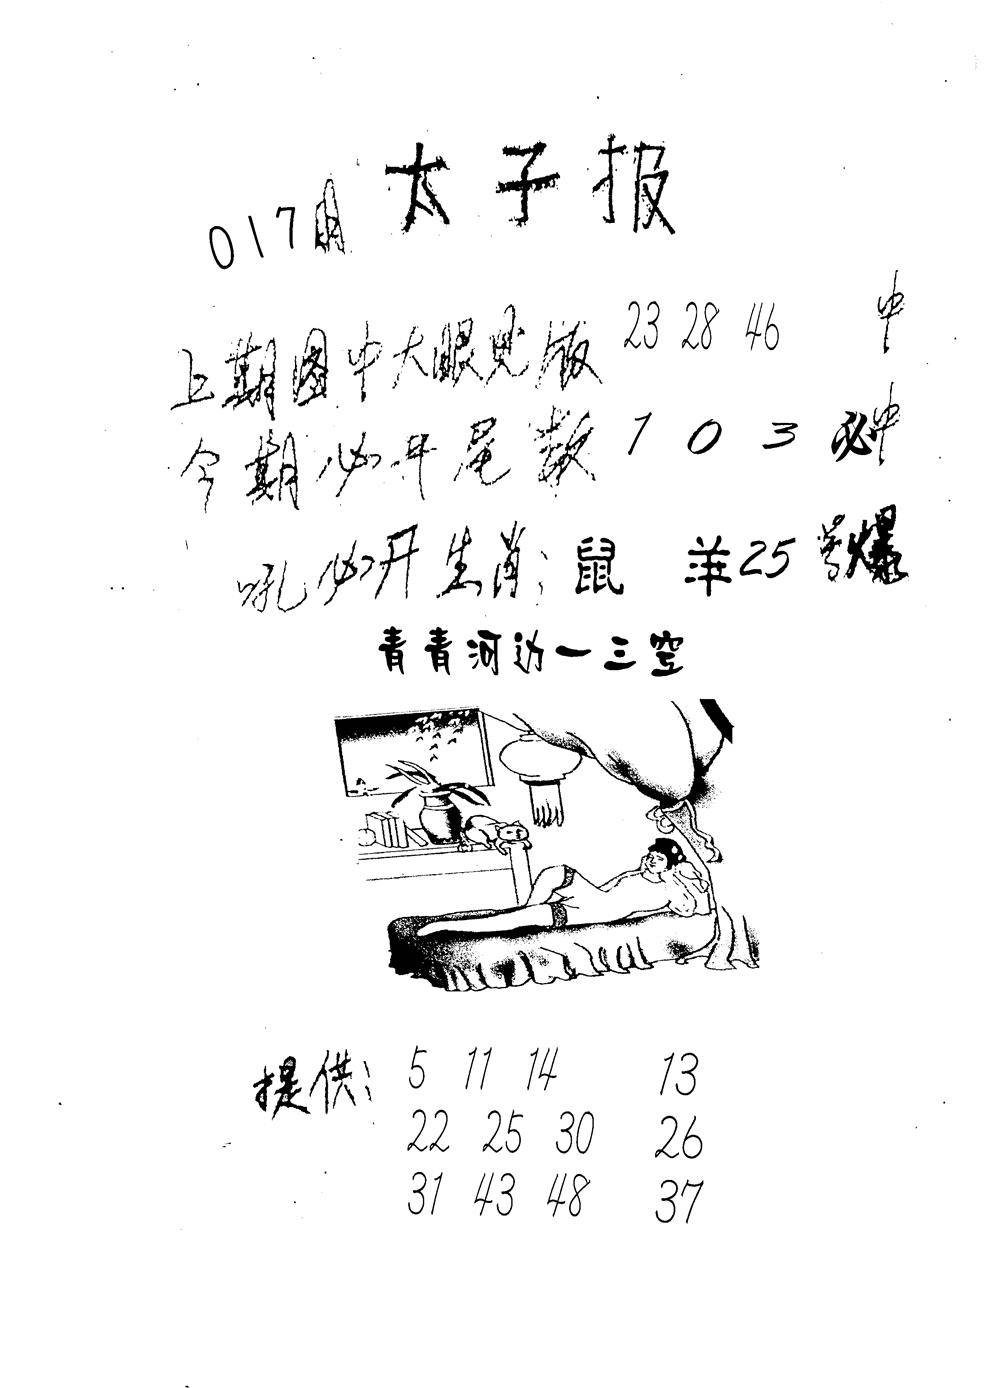 太子报
017期
上期图中大眼见版 23 28 46 中
今期必开尾数 1 0 3 必中
吼必开生肖：鼠 羊25号爆
青青河边一三空
提供： 5 11 14 13
22 25 30 26
31 43 48 37